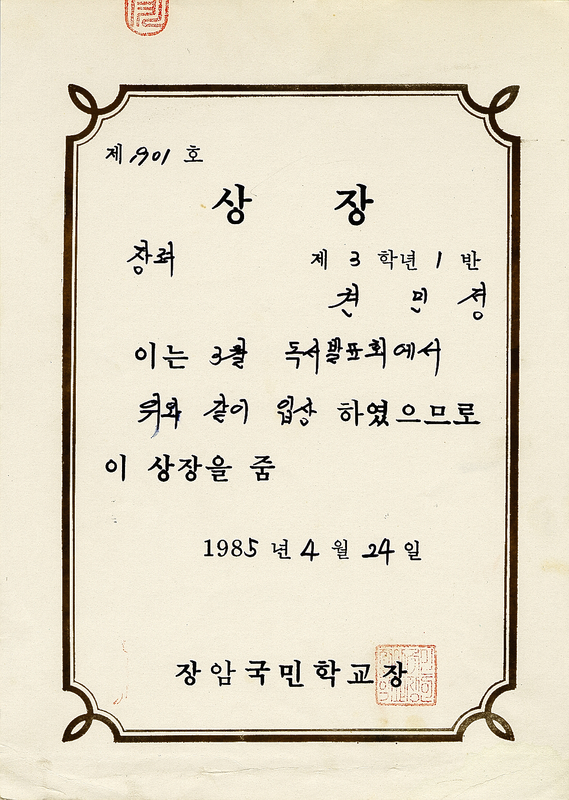 제 901 호
상 장
장려
제 3 학년 1 반
권 민 정
이는 3월 독서발표회에서
위와 같이 입상 하였으므로
이 상장을 줌
1985 년 4 월 24 일
장암국민학교장